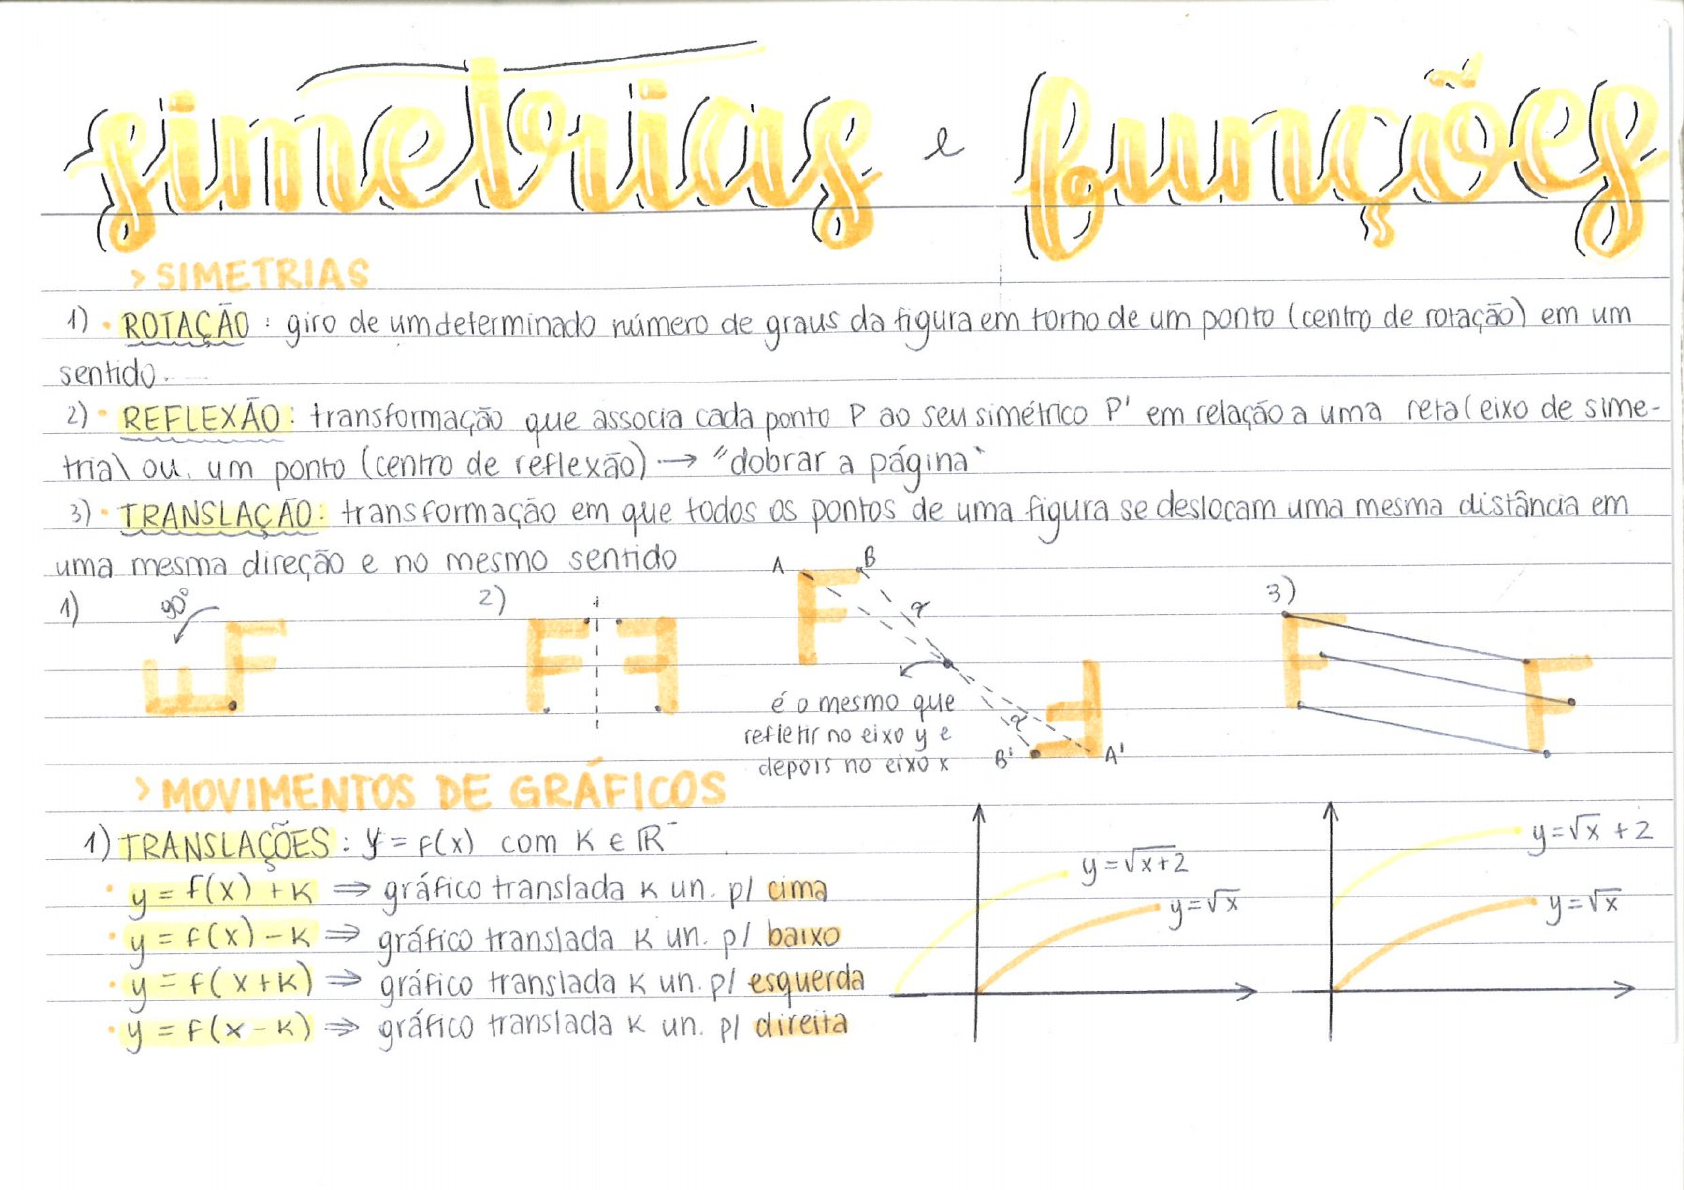 simetrias e funções
> SIMETRIAS
1) • ROTAÇÃO : giro de um determinado número de graus da figura em torno de um ponto (centro de rotação) em um
sentido.
2) • REFLEXÃO : transformação que associa cada ponto P ao seu simétrico P' em relação a uma reta (eixo de sime-
tria) ou um ponto (centro de reflexão) → "dobrar a página"
3) • TRANSLAÇÃO : transformação em que todos os pontos de uma figura se deslocam uma mesma distância em
uma mesma direção e no mesmo sentido
1) 90° F F
2) F F
A B F
é o mesmo que
refletir no eixo y e
depois no eixo x
B' A' F
3) F F
> MOVIMENTOS DE GRÁFICOS
1) TRANSLAÇÕES : y = f(x) com K ∈ ℝ⁻
• y = f(x) + K ⇒ gráfico translada K un. p/ cima
• y = f(x) - K ⇒ gráfico translada K un. p/ baixo
• y = f(x+K) ⇒ gráfico translada K un. p/ esquerda
• y = f(x-K) ⇒ gráfico translada K un. p/ direita
y=√x+2
y=√x
y=√x + 2
y=√x